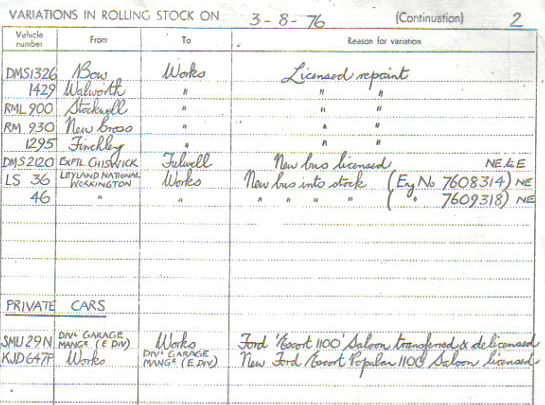 VARIATIONS IN ROLLING STOCK ON 3-8-76 (Continuation) 2
Vehicle number From To Reason for variation
DMS1326 Bow Works Licensed repaint
1429 Walworth " " "
RML 900 Stockwell " " "
RM 930 New Cross " " "
1295 Finchley " " "
DMS2120 EXPTL CHISWICK Fulwell New bus licensed NE & E
LS 36 LEYLAND NATIONAL WORKINGTON Works New bus into stock (Eng No 7608314) NE
46 " " " " " " ( " 7609318) NE
PRIVATE CARS
SMU29N DIVL GARAGE MANGR (E DIV) Works Ford 'Escort 1100' Saloon transferred & delicensed
KJD647P Works DIVL GARAGE MANGR (E.DIV) New Ford Escort Popular 1100 Saloon licensed